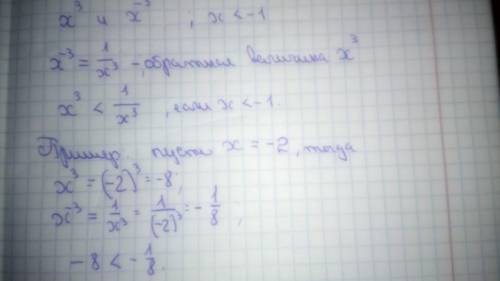 x³ и x⁻³ ; x < -1
x⁻³ = 1/x³ - обратная величина x³
x³ < 1/x³ , если x < -1.
Пример. пусть x = -2, тогда
x³ = (-2)³ = -8;
x⁻³ = 1/x³ = 1/(-2)³ = - 1/8 ;
-8 < - 1/8.